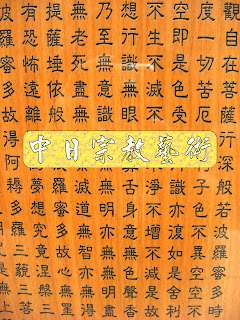 觀自在菩薩行深般若波羅蜜多時
度一切苦厄子色不異空空不
空即是色受識亦復如是舍利
不生不滅不淨不增不減是故
想行識無眼舌身意無色聲香
乃至無意識無明亦無無明盡
無老死盡無滅道無智亦無得
提薩埵依般羅蜜多故心無罣
有恐怖遠離夢想究竟涅槃三
波羅蜜多故得阿耨多羅三藐三菩
中日宗教藝術